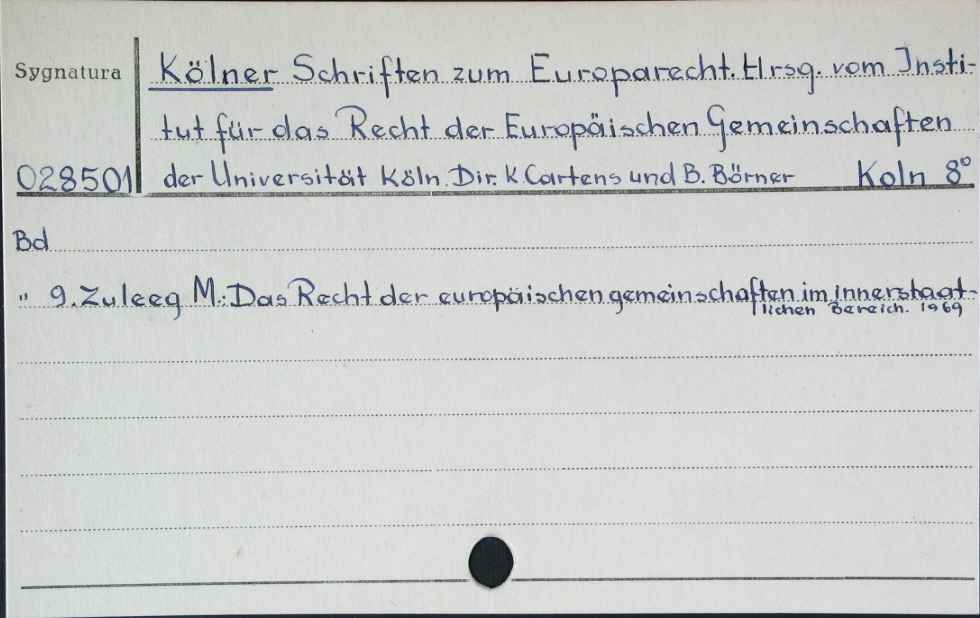 Sygnatura Kölner Schriften zum Europarecht. Hrsg. vom Insti-
tut für das Recht der Europäischen Gemeinschaften
028501 der Universität Köln. Dir. K Cartens und B. Börner Koln 8°
Bd
" 9. Zuleeg M.: Das Recht der europäischen gemeinschaften im innerstaat-
lichen Bereich. 1969